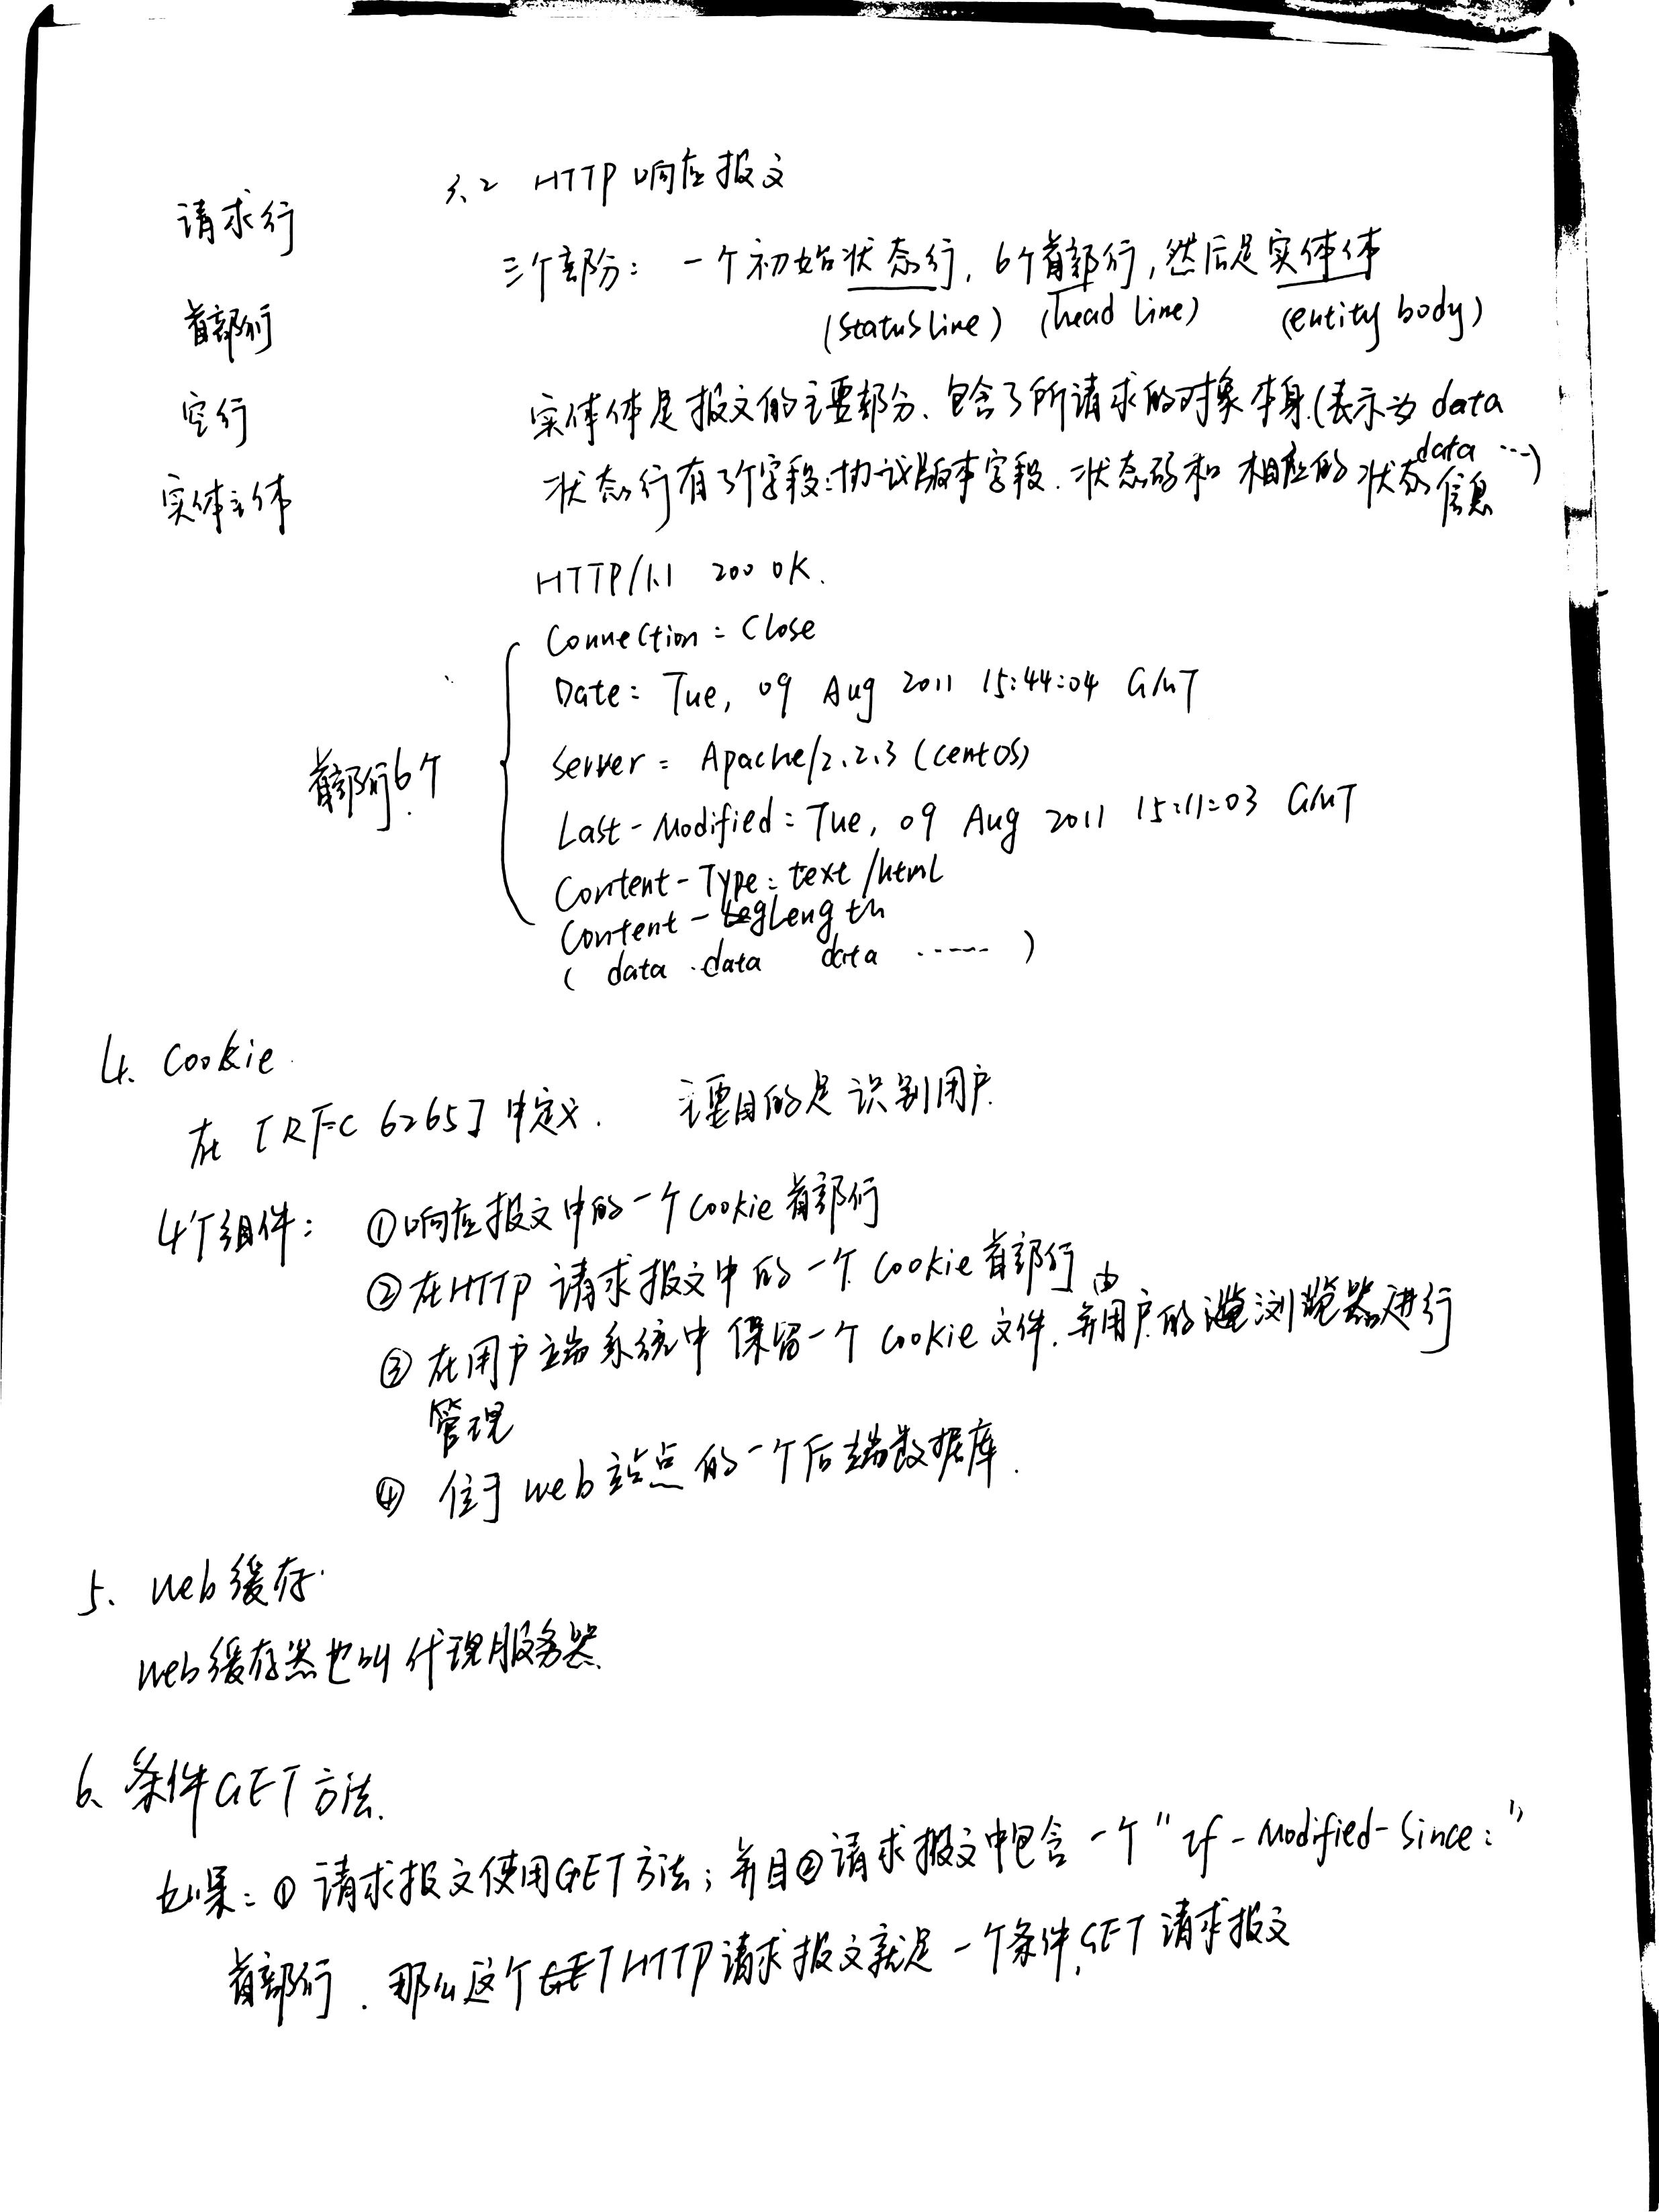 请求行
首部行
空行
实体主体
3.2 HTTP响应报文
三个部份：一个初始状态行，6个首部行，然后是实体体
(status line) (head line) (entity body)
实体体是报文的主要部分、包含了所请求的对象本身(表示为 data
data ···)
状态行有3个字段：协议版本字段、状态码和相应的状态信息
HTTP/1.1 200 OK.
首部行6个.
Connection: Close
Date: Tue, 09 Aug 2011 15:44:04 GMT
Server: Apache/2.2.3 (CentOS)
Last-Modified: Tue, 09 Aug 2011 15:11:03 GMT
Content-Type: text/html
Content-Length
( data data data ······ )
4. Cookie
在 [RFC 6265] 中定义. 主要目的是识别用户.
4个组件： ①响应报文中的一个cookie首部行
②在HTTP请求报文中的一个cookie首部行
③在用户端系统中保留一个cookie文件.并由用户的浏览器进行
管理
④ 位于web站点的一个后端数据库.
5、web缓存.
web缓存器也叫代理服务器.
6、条件GET方法.
如果：①请求报文使用GET方法；并且②请求报文中包含一个"If-Modified-Since:"
首部行.那么这个HTTP请求报文就是一个条件GET请求报文